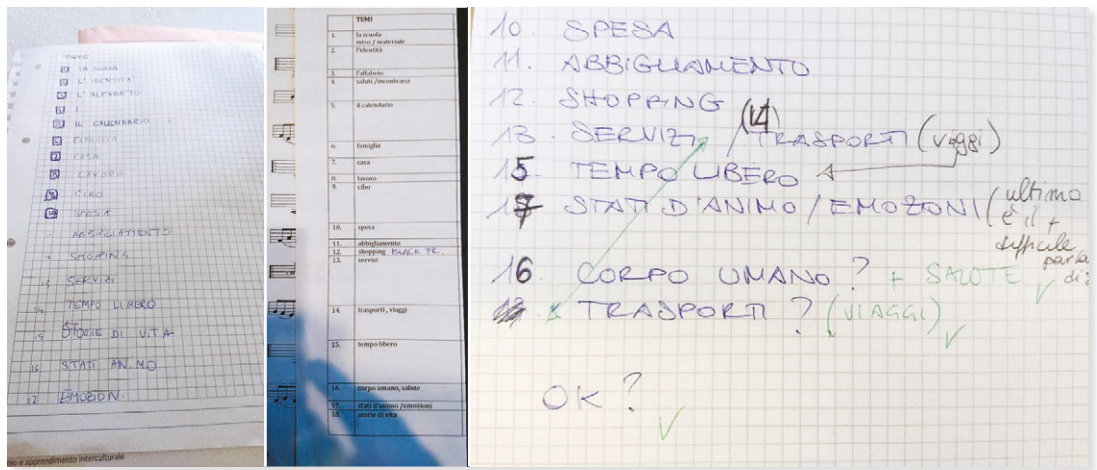 LA SCUOLA
L'IDENTITÀ
L'ALFABETO
IL CALENDARIO
FAMIGLIA
CASA
LAVORO
CIBO
SPESA
ABBIGLIAMENTO
SHOPPING
13 SERVIZI
14 TEMPO LIBERO
15 STORIE DI VITA
16 STATI ANIMO
17 EMOZION.
mo e apprendimento interculturale
TEMI
1. la scuola
arivo / materiale
2. l'identità
3. l'alfabeto
4. saluti /incontrarsi
5. il calendario
6. famiglia
7. casa
8. lavoro
9. cibo
10. spesa
11. abbigliamento
12. shopping BLACK FR.
13. servizi
14. trasporti, viaggi
15. tempo libero
16. corpo umano, salute
17. stati d'animo /emozioni
18. storie di vita
10. SPESA
11. ABBIGLIAMENTO
12. SHOPPING
13. SERVIZI / (14) TRASPORTI (viaggi)
15. TEMPO LIBERO
17 STATI D'ANIMO / EMOZIONI (ultimo
è il +
difficile
parla
di
16. CORPO UMANO ? + SALUTE
TRASPORTI ? (VIAGGI)
OK ?